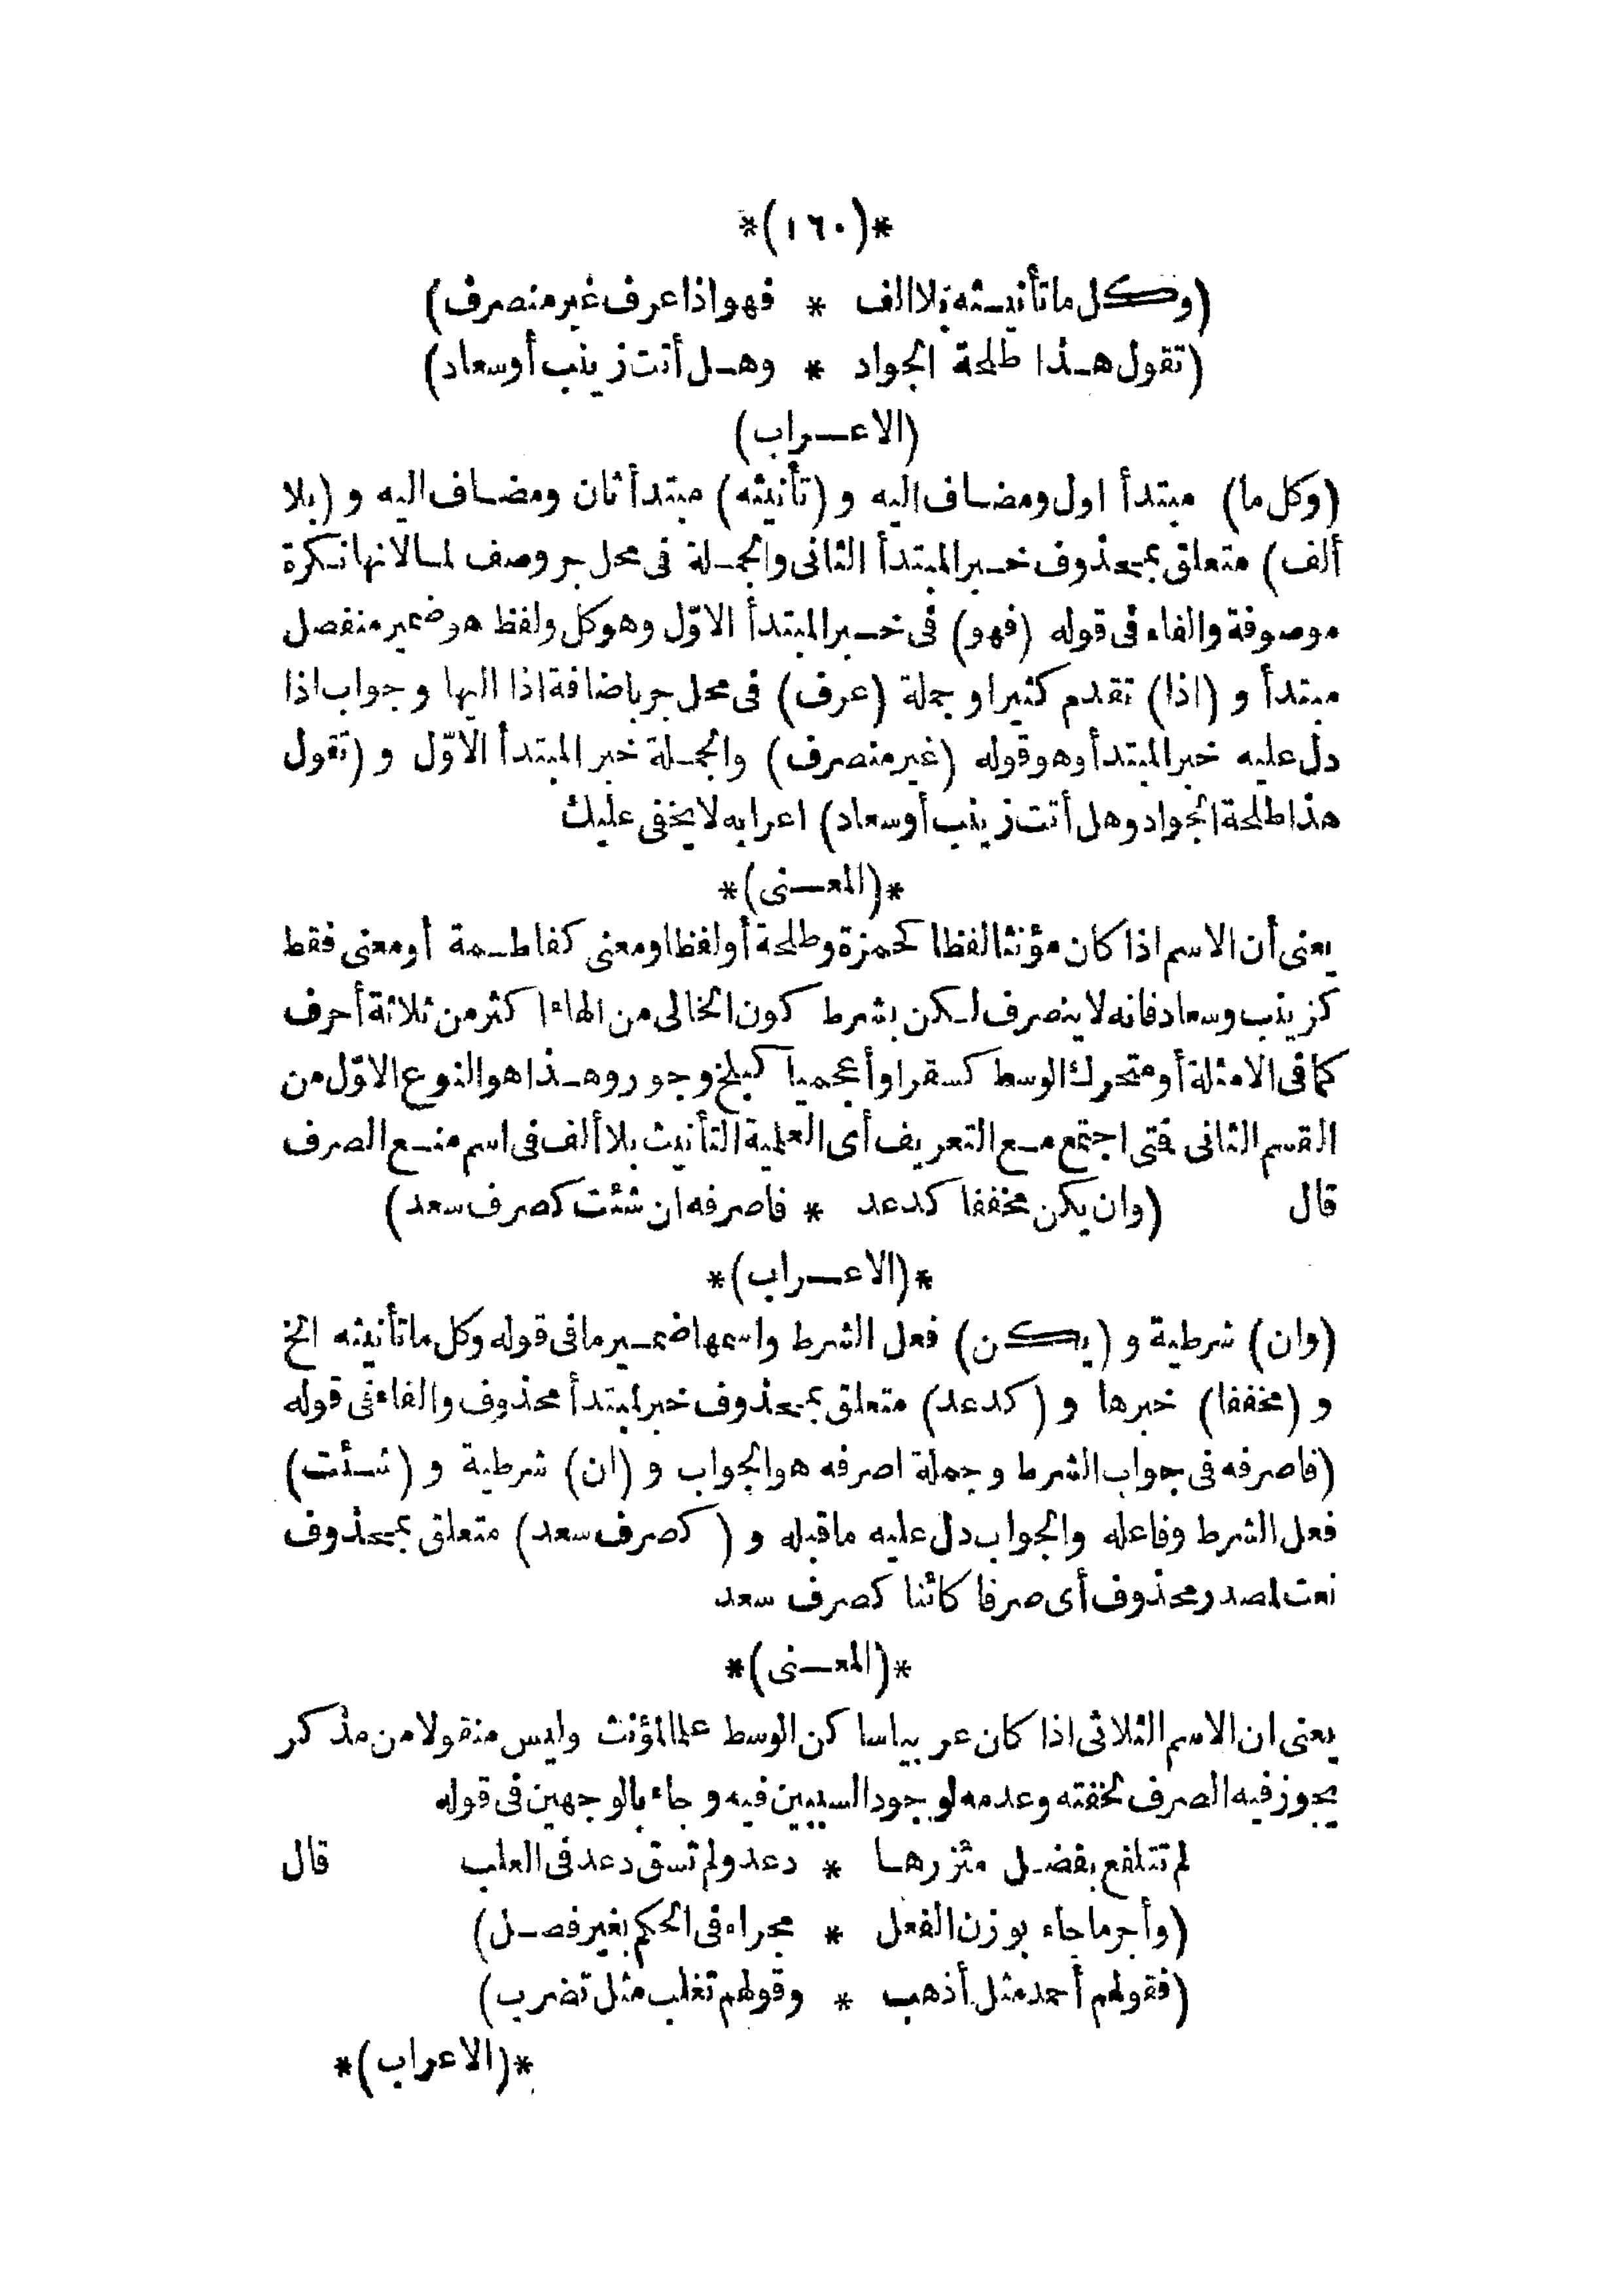 *(١٦٠)*
(وكل ما تأنيثه بلا الف * فهو اذا عرف غير منصرف)
(تقول هذا طلحة الجواد * وهل أتت زينب أو سعاد)
(الاعراب)
(وكل ما) مبتدأ اول ومضاف اليه و (تأنيثه) مبتدأ ثان ومضاف اليه و (بلا
ألف) متعلق بمحذوف خبر المبتدأ الثانى والجملة فى محل جر وصف لما لانها نكرة
موصوفة والفاء فى قوله (فهو) فى خبر المبتدأ الاوّل وهو كل ولفظ هو ضمير منفصل
مبتدأ و (اذا) تقدم كثيرا وجملة (عرف) فى محل جر باضافة اذا اليها وجواب اذا
دل عليه خبر المبتدأ وهو قوله (غير منصرف) والجملة خبر المبتدأ الاوّل و (تقول
هذا طلحة الجواد وهل أتت زينب أو سعاد) اعرابه لا يخفى عليك
*(المعنى)*
يعنى أن الاسم اذا كان مؤنثا لفظا كحمزة وطلحة أو لفظا ومعنى كفاطمة أو معنى فقط
كزينب وسعاد فانه لا ينصرف لكن بشرط كون الخالى من الهاء اكثر من ثلاثة أحرف
كما فى الامثلة أو متحرك الوسط كسقر او أعجميا كبلخ وجور وهذا هو النوع الاوّل من
القسم الثانى فمتى اجتمع مع التعريف أى العلمية التأنيث بلا ألف فى اسم منع الصرف
قال (وان يكن مخففا كدعد * فاصرفه ان شئت كصرف سعد)
*(الاعراب)*
(وان) شرطية و (يكن) فعل الشرط واسمها ضمير ما فى قوله وكل ما تأنيثه الخ
و (مخففا) خبرها و (كدعد) متعلق بمحذوف خبر لمبتدأ محذوف والفاء فى قوله
(فاصرفه فى جواب الشرط وجملة اصرفه هو الجواب و (ان) شرطية و (شئت)
فعل الشرط وفاعله والجواب دل عليه ما قبله و (كصرف سعد) متعلق بمحذوف
نعت لمصدر محذوف أى صرفا كائنا كصرف سعد
*(المعنى)*
يعنى ان الاسم الثلاثى اذا كان عربيا ساكن الوسط علما لمؤنث وليس منقولا من مذكر
يجوز فيه الصرف لخفته وعدمه لوجود السببين فيه وجاء بالوجهين فى قوله
لم تتلفع بفضل مئزرها * دعد ولم تسق دعد فى العلب قال
(وأجر ما جاء بوزن الفعل * مجراه فى الحكم بغير فصل)
(فقولهم أحمد مثل أذهب * وقولهم تغلب مثل تضرب)
*(الاعراب)*